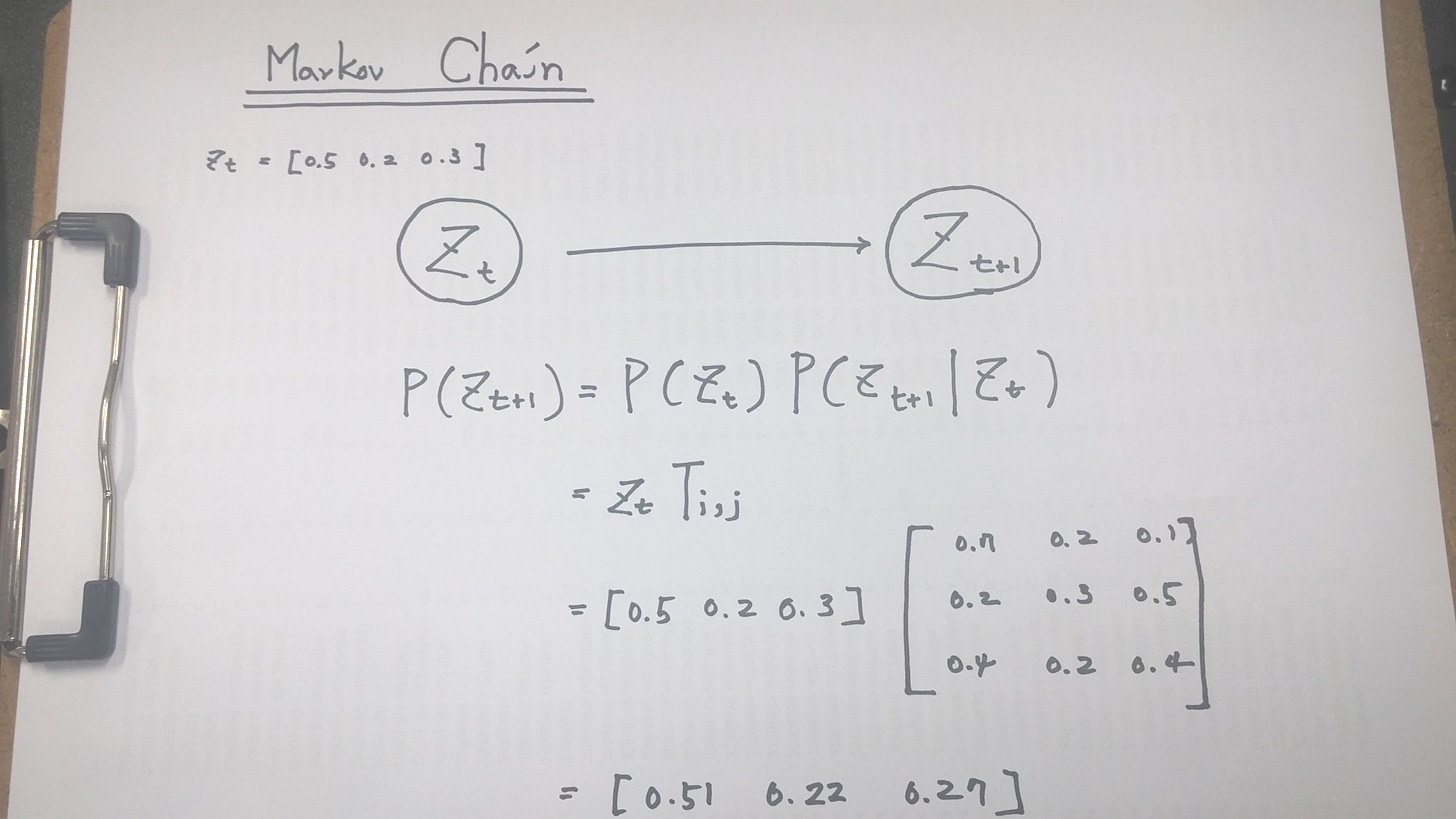 Markov Chain
Zt = [0.5 0.2 0.3]
Zt → Zt+1
P(Zt+1) = P(Zt) P(Zt+1 | Zt)
= Zt Ti,j
0.7 0.2 0.1
= [0.5 0.2 0.3] [0.2 0.3 0.5]
0.4 0.2 0.4
= [0.51 0.22 0.27]